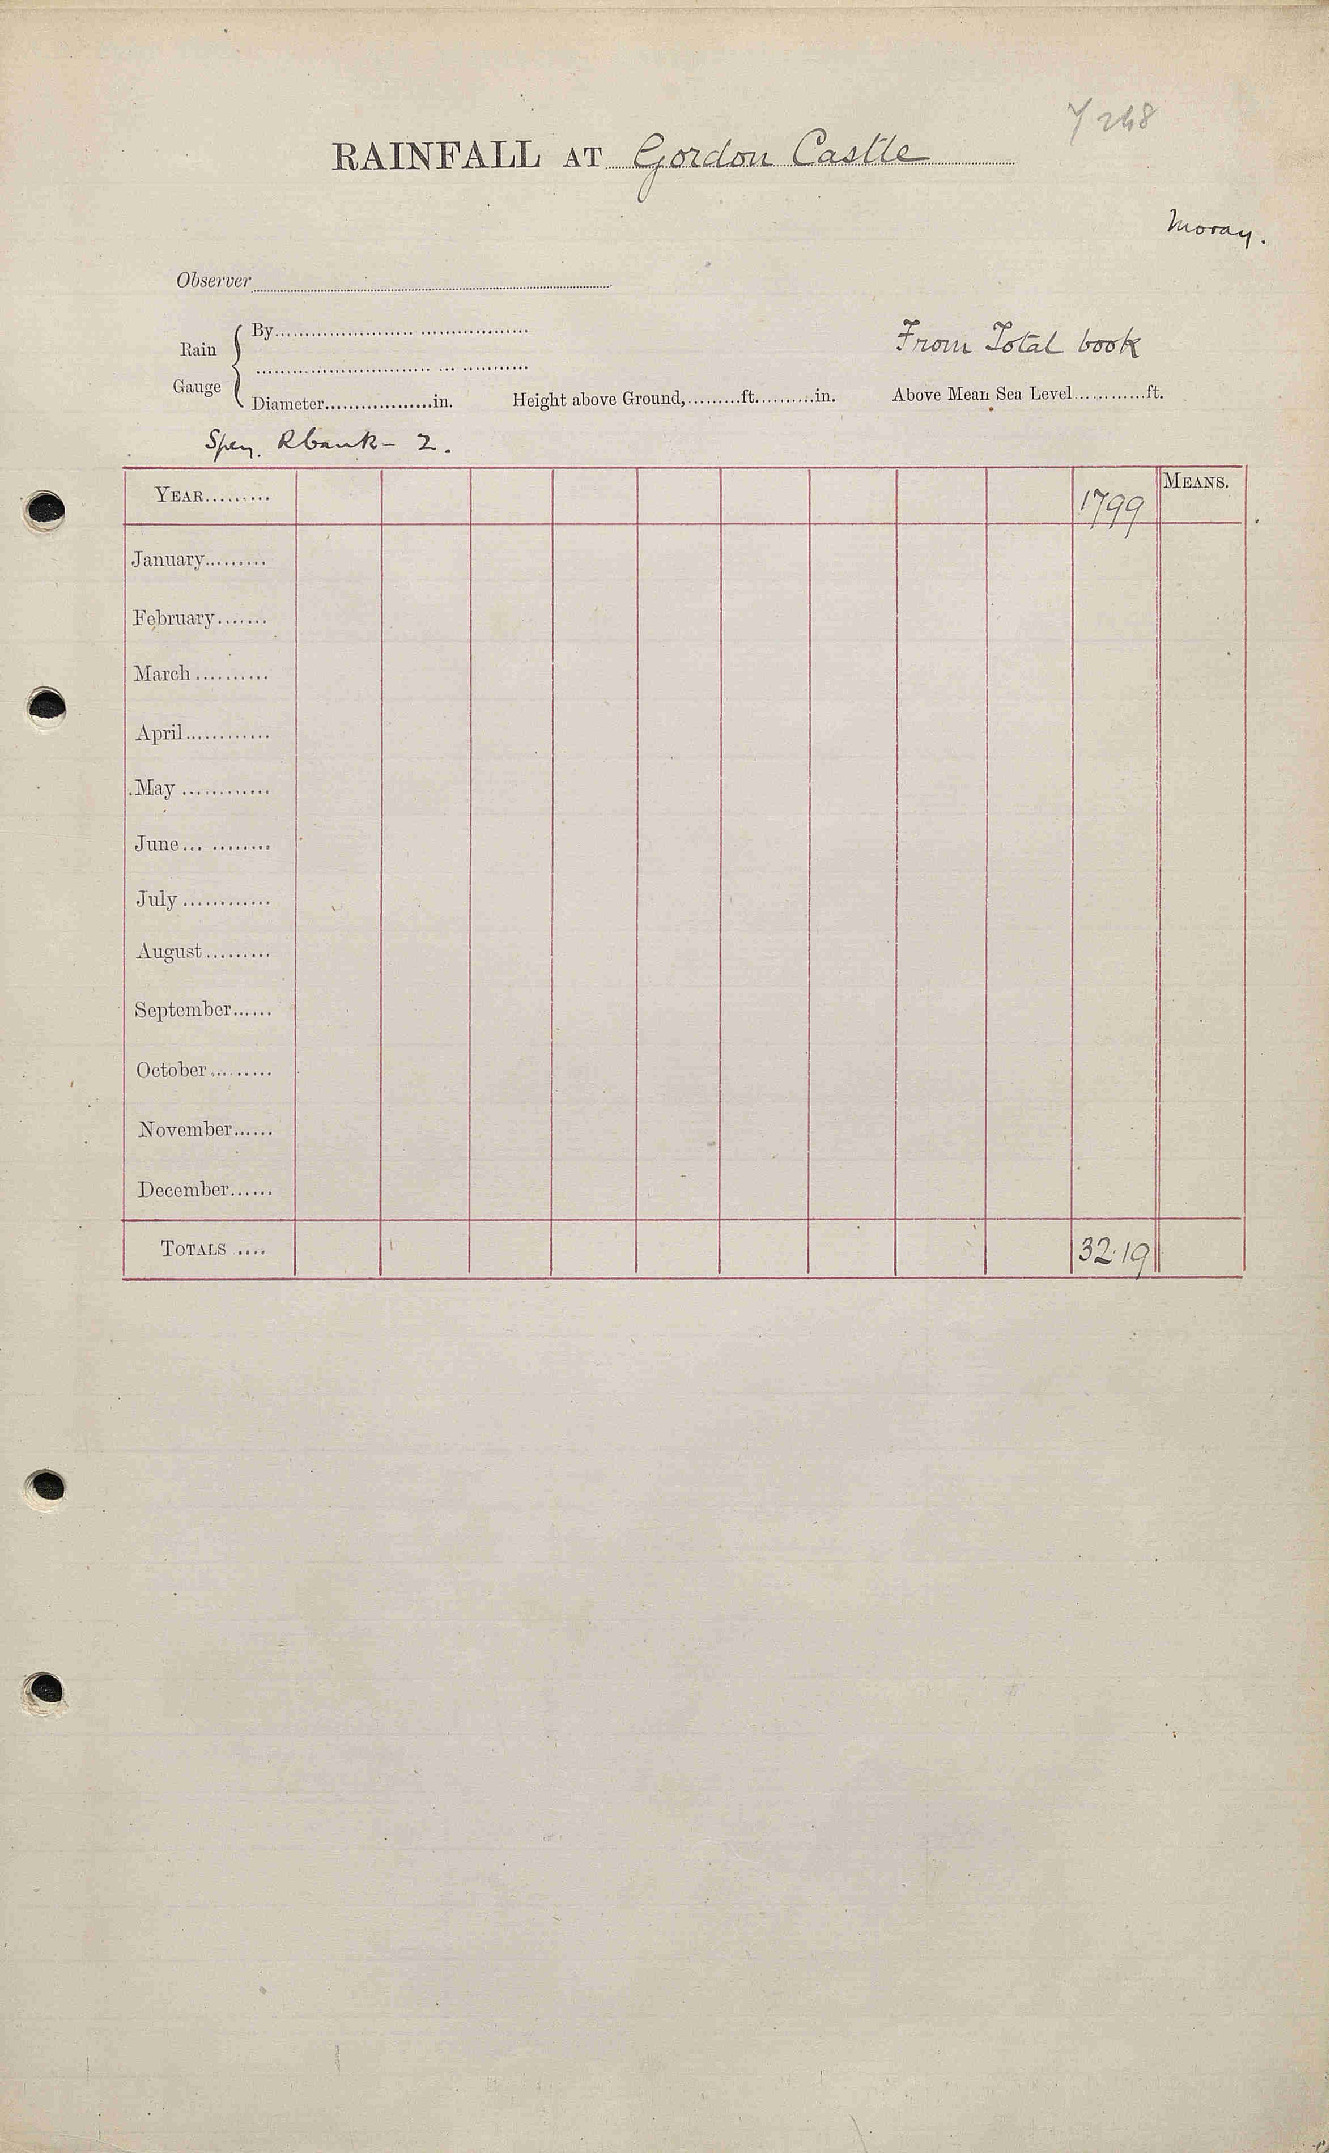 7/248
RAINFALL AT Gordon Castle
Moray.
Observer
Rain Gauge { By
From Total book
Diameter..................in. Height above Ground,.........ft..........in. Above Mean Sea Level............ft.
Spey. Rbank - 2.
YEAR......... 1799 MEANS.
January.........
February.......
March..........
April............
May............
June... ........
July............
August.........
September......
October.........
November......
December......
TOTALS .... 32.19